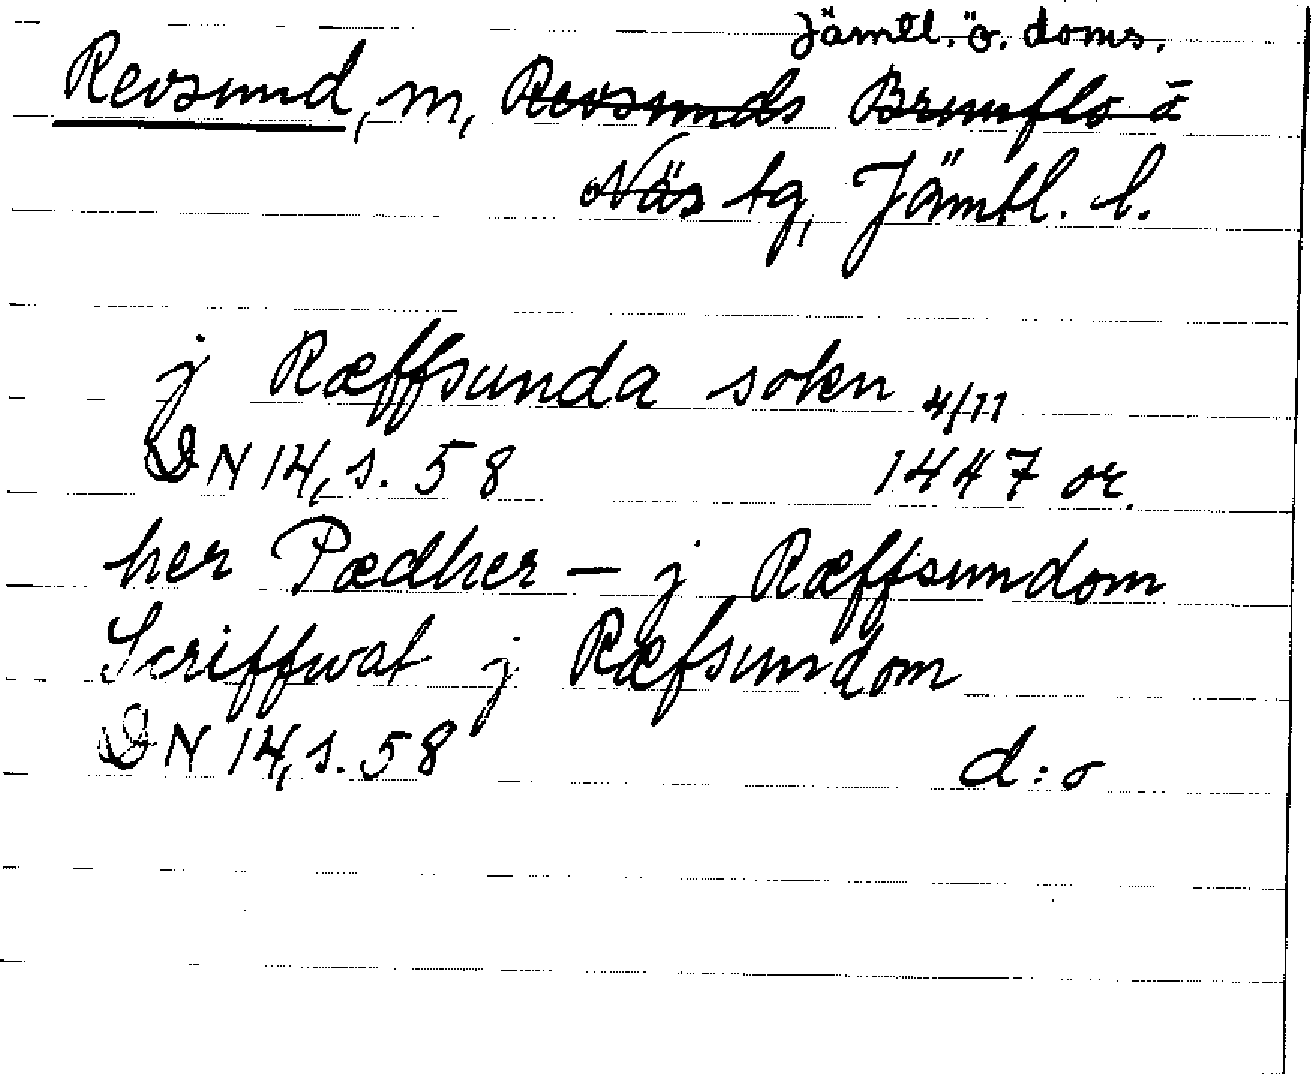 Jämtl. ö. doms.
Revsund, sn, Revsunds Brunflo o
Näs tg, Jämtl. l.
j Ræffsunda sokn 4/11
DN 14, s. 58 1447 or.
her Pædher — j Ræffsundom
Scriffwat j Ræfsundom
DN 14, s. 58 d:o